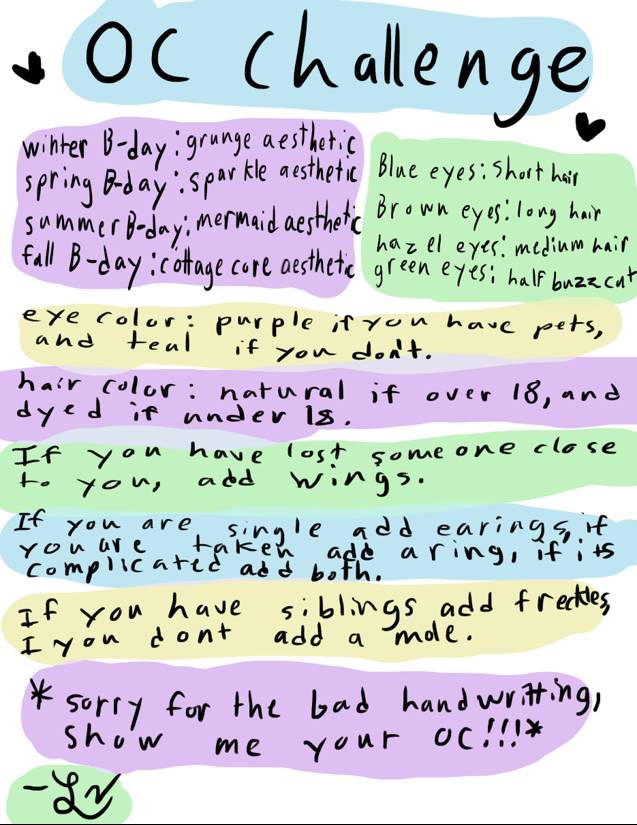 OC challenge
winter B-day: grunge aesthetic
spring B-day: sparkle aesthetic
summer B-day: mermaid aesthetic
fall B-day: cottage core aesthetic
Blue eyes: short hair
Brown eyes: long hair
hazel eyes: medium hair
green eyes: half buzz cut
eye color: purple if you have pets,
and teal if you don't.
hair color: natural if over 18, and
dyed if under 18.
If you have lost someone close
to you, add wings.
If you are single add earings, if
you are taken add a ring, if its
complicated add both.
If you have siblings add freckles,
I you dont add a mole.
* sorry for the bad handwritting,
show me your OC!!!*